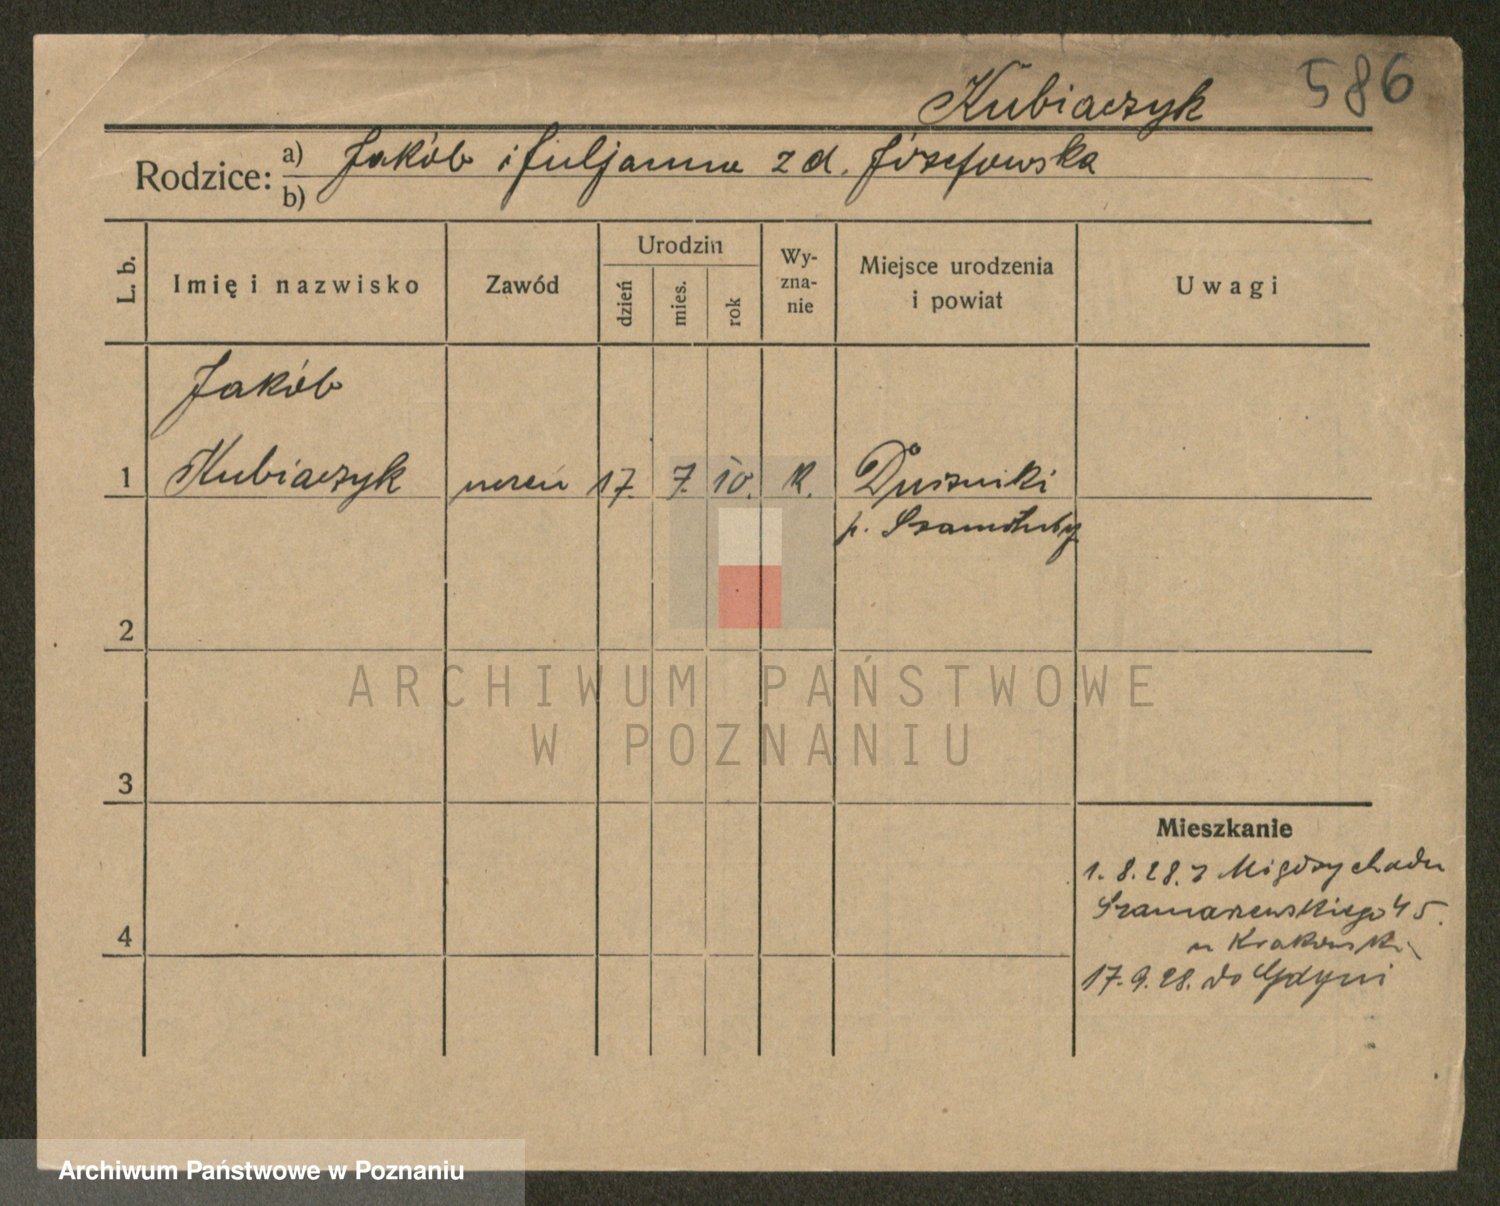 Kubiaczyk 586
Rodzice: a) Jakób i Juljanna z d. Józefowska
b)
L. b. Imię i nazwisko Zawód Urodzin dzień mies. rok Wy-zna-nie Miejsce urodzenia i powiat Uwagi
Jakób
1 Kubiaczyk uczeń 17. 7. 10. k. Duszniki
p. Szamotuły
2
ARCHIWUM PAŃSTWOWE
W POZNANIU
3
Mieszkanie
1. 8. 28. z Międzychodu
Szamarzewskiego 45.
u Krakowski
4
17. 9. 28. do Gdyni
Archiwum Państwowe w Poznaniu